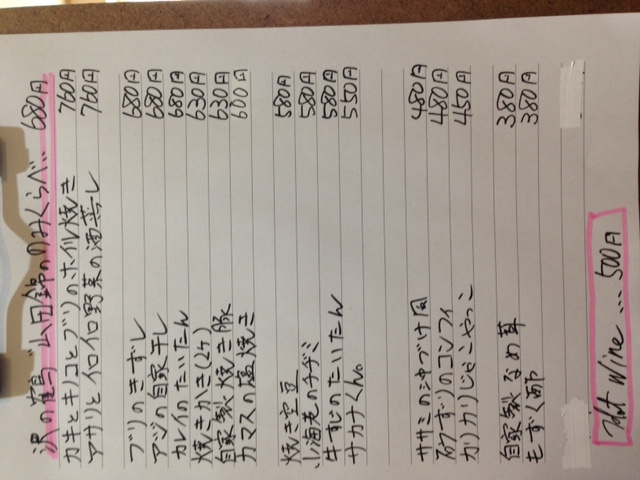 沢の鶴"山田錦ののみくらべ... 680円
カキとキノコとブリのホイル焼き 760円
アサリとイロイロ野菜の酒蒸し 760円
ブリのきずし 680円
アジの自家干し 680円
カレイのたいたん 680円
焼きかき(2ケ) 630円
自家製焼き豚 630円
カマスの塩焼き 600円
焼き空豆 580円
小海老のチヂミ 580円
牛すじのたいたん 580円
サカナくん。 550円
ササミの沖づけ風 480円
砂ずりのコンフィ 480円
カリカリじゃこやっこ 450円
自家製なめ茸 380円
もずく酢 380円
Hot wine ... 500円